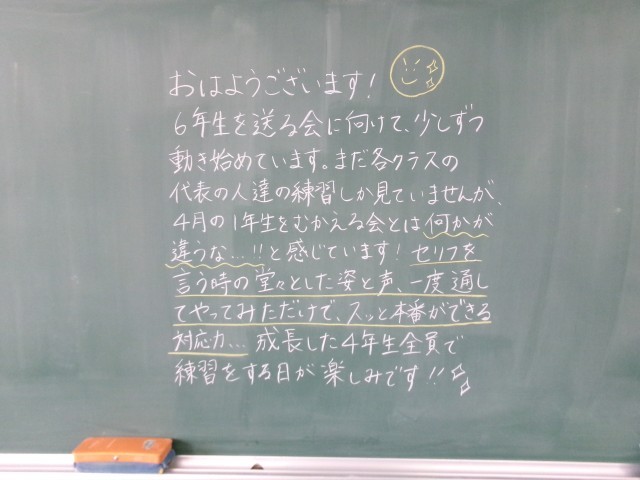 おはようございます!
6年生を送る会に向けて、少しずつ
動き始めています。まだ各クラスの
代表の人達の練習しか見ていませんが、
4月の1年生をむかえる会とは何かが
違うな…!!と感じています!セリフを
言う時の堂々とした姿と声、一度通し
てやってみただけで、スッと本番ができる
対応力… 成長した4年生全員で
練習をする日が楽しみです!!